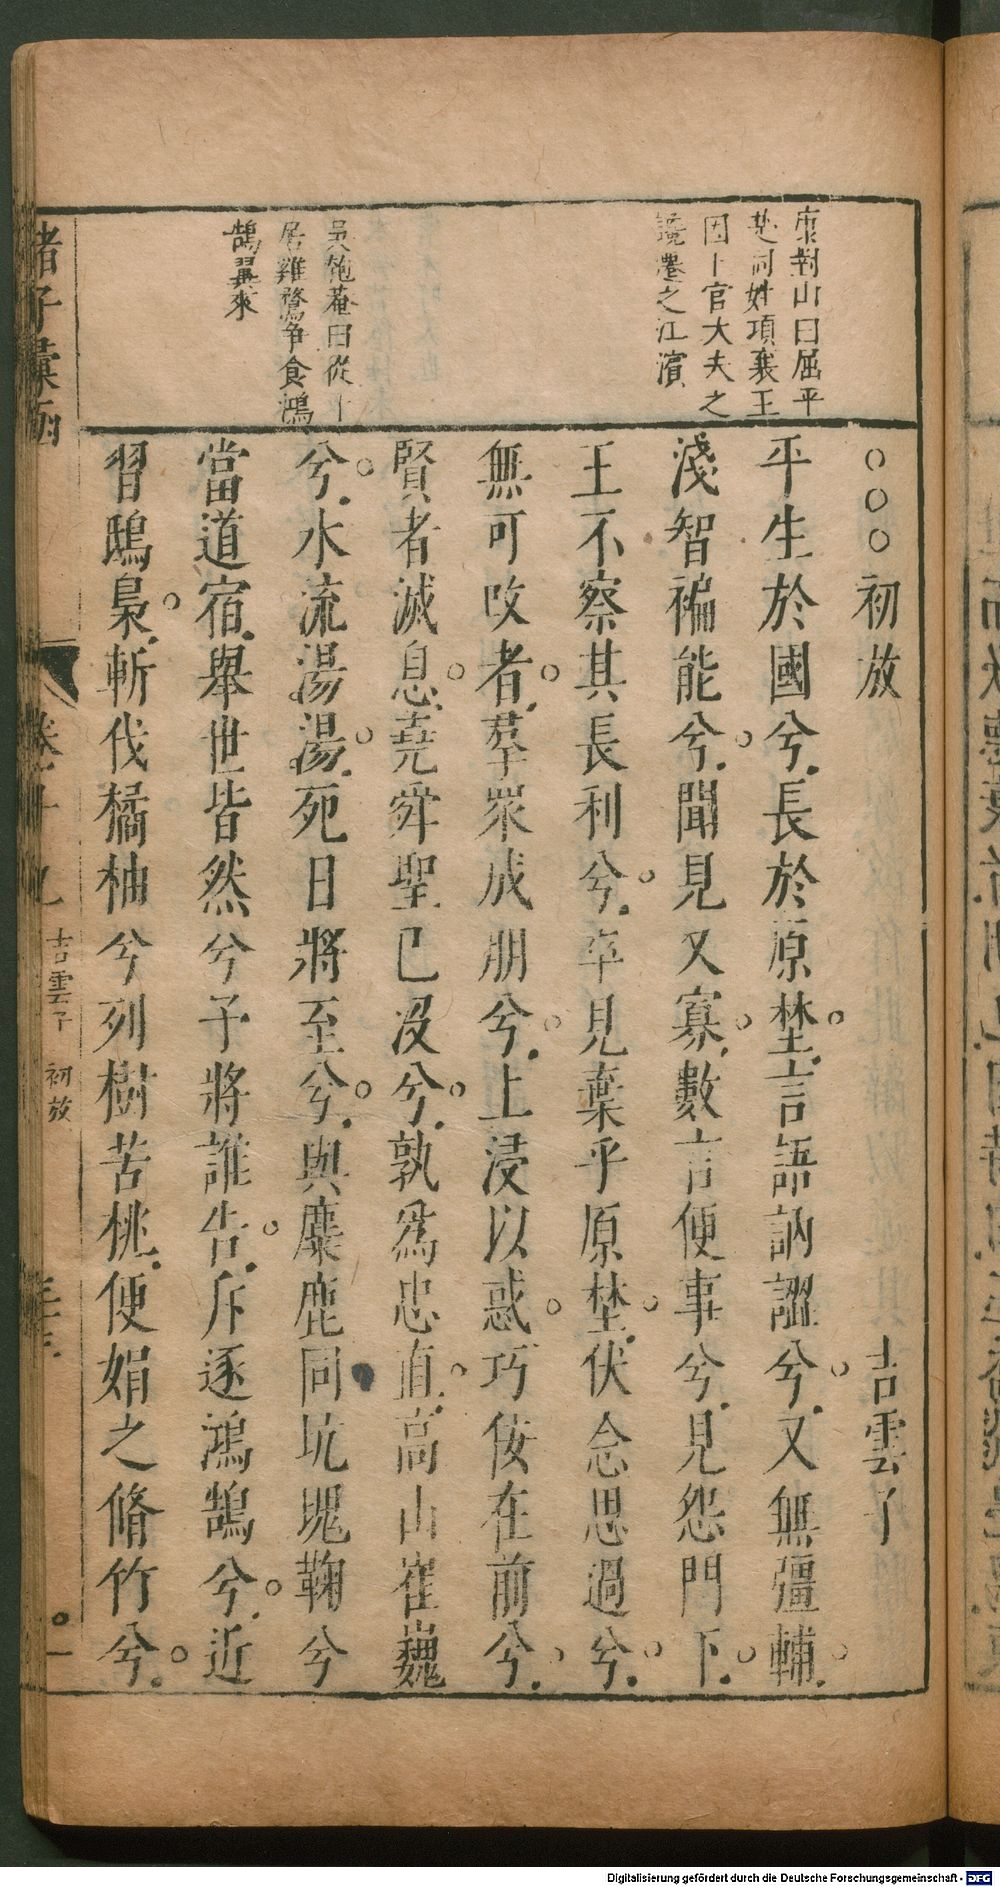 康對山曰屈平
於同姓項襄王
因卜官大夫之
讒遷之江濱
吳匏菴曰從卜
居雞鶩争食鴻
鵠翼來
○○○初放 吉雲子
平生於國兮長於原埜言語訥譅兮又無彊輔
淺智褊能兮聞見又寡數言便事兮見怨門下
王不察其長利兮卒見棄乎原埜伏念思過兮
無可改者羣衆成朋兮上浸以惑巧佞在前兮
賢者滅息堯舜聖已没兮孰爲忠直高山崔巍
兮水流湯湯死日將至兮與麋鹿同坑塊鞠兮
當道宿舉世皆然兮予將誰告斥逐鴻鵠兮近
習鴟梟斬伐橘柚兮列樹苦桃便娟之脩竹兮
諸子彙函 卷十九 吉雲子 初放
Digitalisierung gefördert durch die Deutsche Forschungsgemeinschaft - DFG